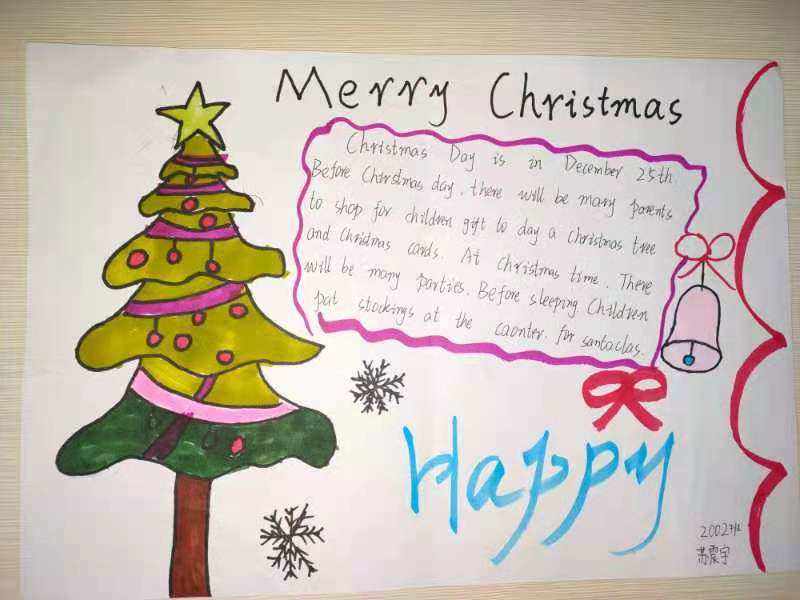 Merry Christmas
Christmas Day is in December 25th.
Before Chirstmas day, there will be many parents
to shop for children gift to day a christmas tree
and Christmas cards. At christmas time. There
will be many parties. Before sleeping Children
pat stockings at the caonter. for santaclas.
Happy
2002
苏震宇